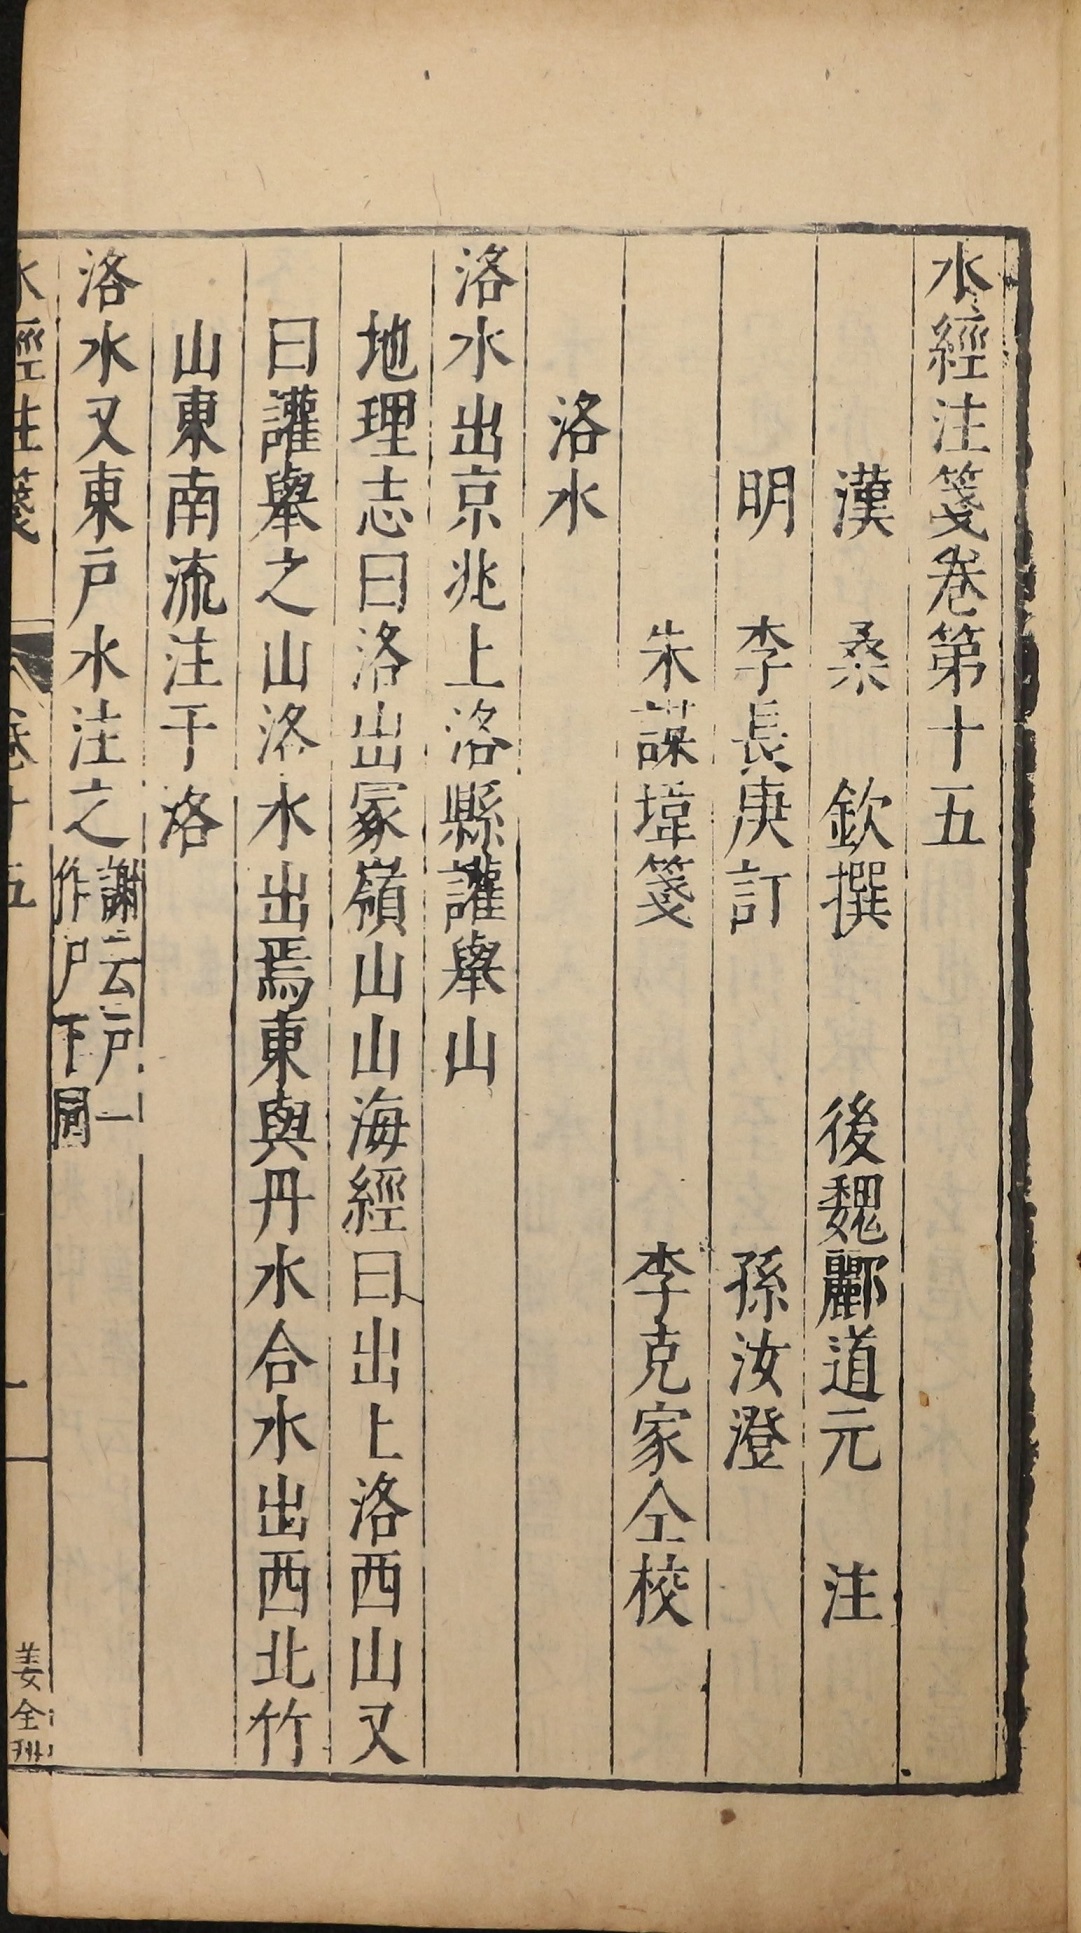 水經注箋卷第十五
漢 桑 欽撰 後魏酈道元 注
明 李長庚訂 孫汝澄
朱謀㙔箋 李克家仝校
洛水
洛水出京兆上洛縣讙舉山
地理志曰洛出冢嶺山山海經曰出上洛西山又
曰讙舉之山洛水出焉東與丹水合水出西北竹
山東南流注于洛
洛水又東戶水注之謝云戶一
作尸下同
水經注箋 卷十五 一 姜全刊